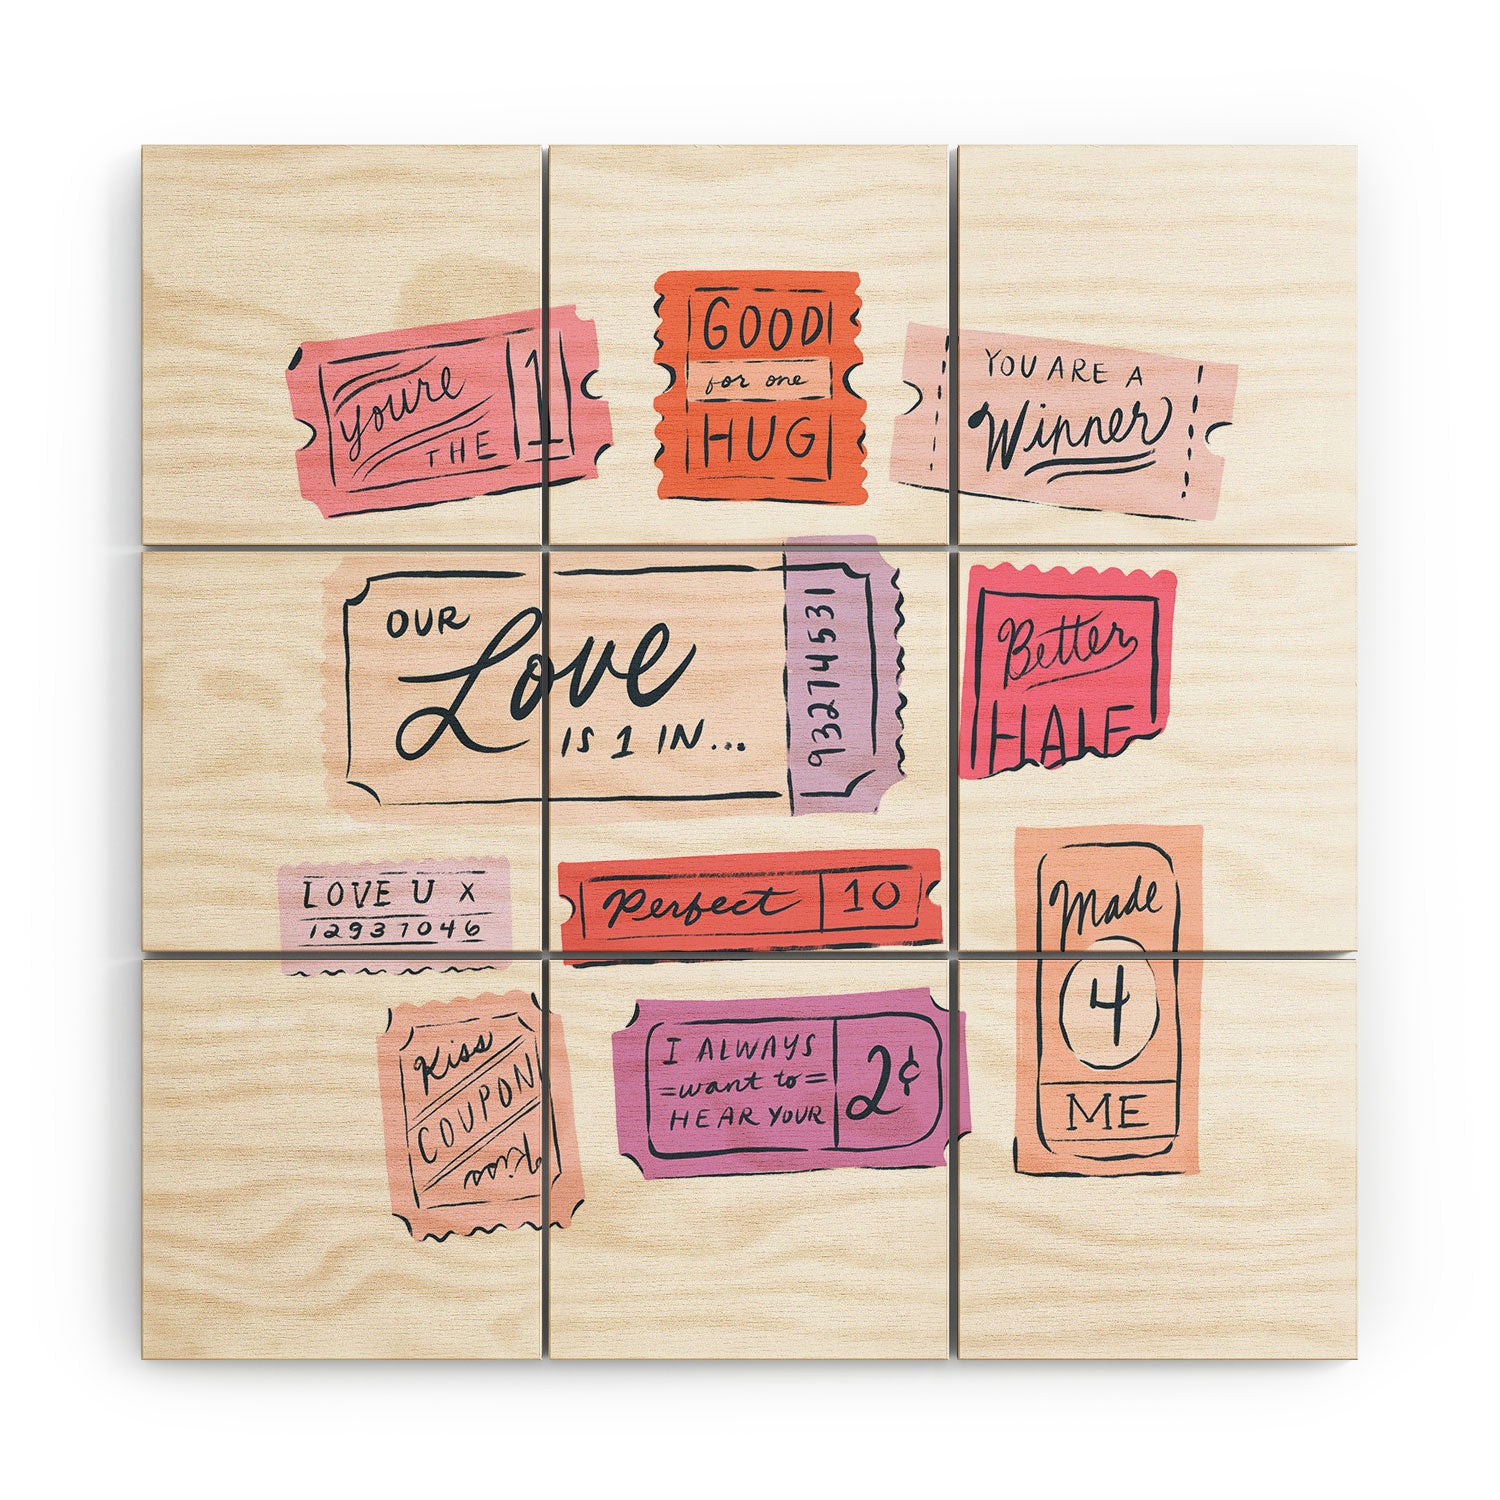 You're
THE
1
GOOD
for one
HUG
YOU ARE A
Winner
OUR
Love
IS 1 IN...
93274531
Better
HALF
LOVE U X
12937046
Perfect
10
Made
4
ME
Kiss
COUPON
Kiss
I ALWAYS
=want to=
HEAR YOUR
2¢